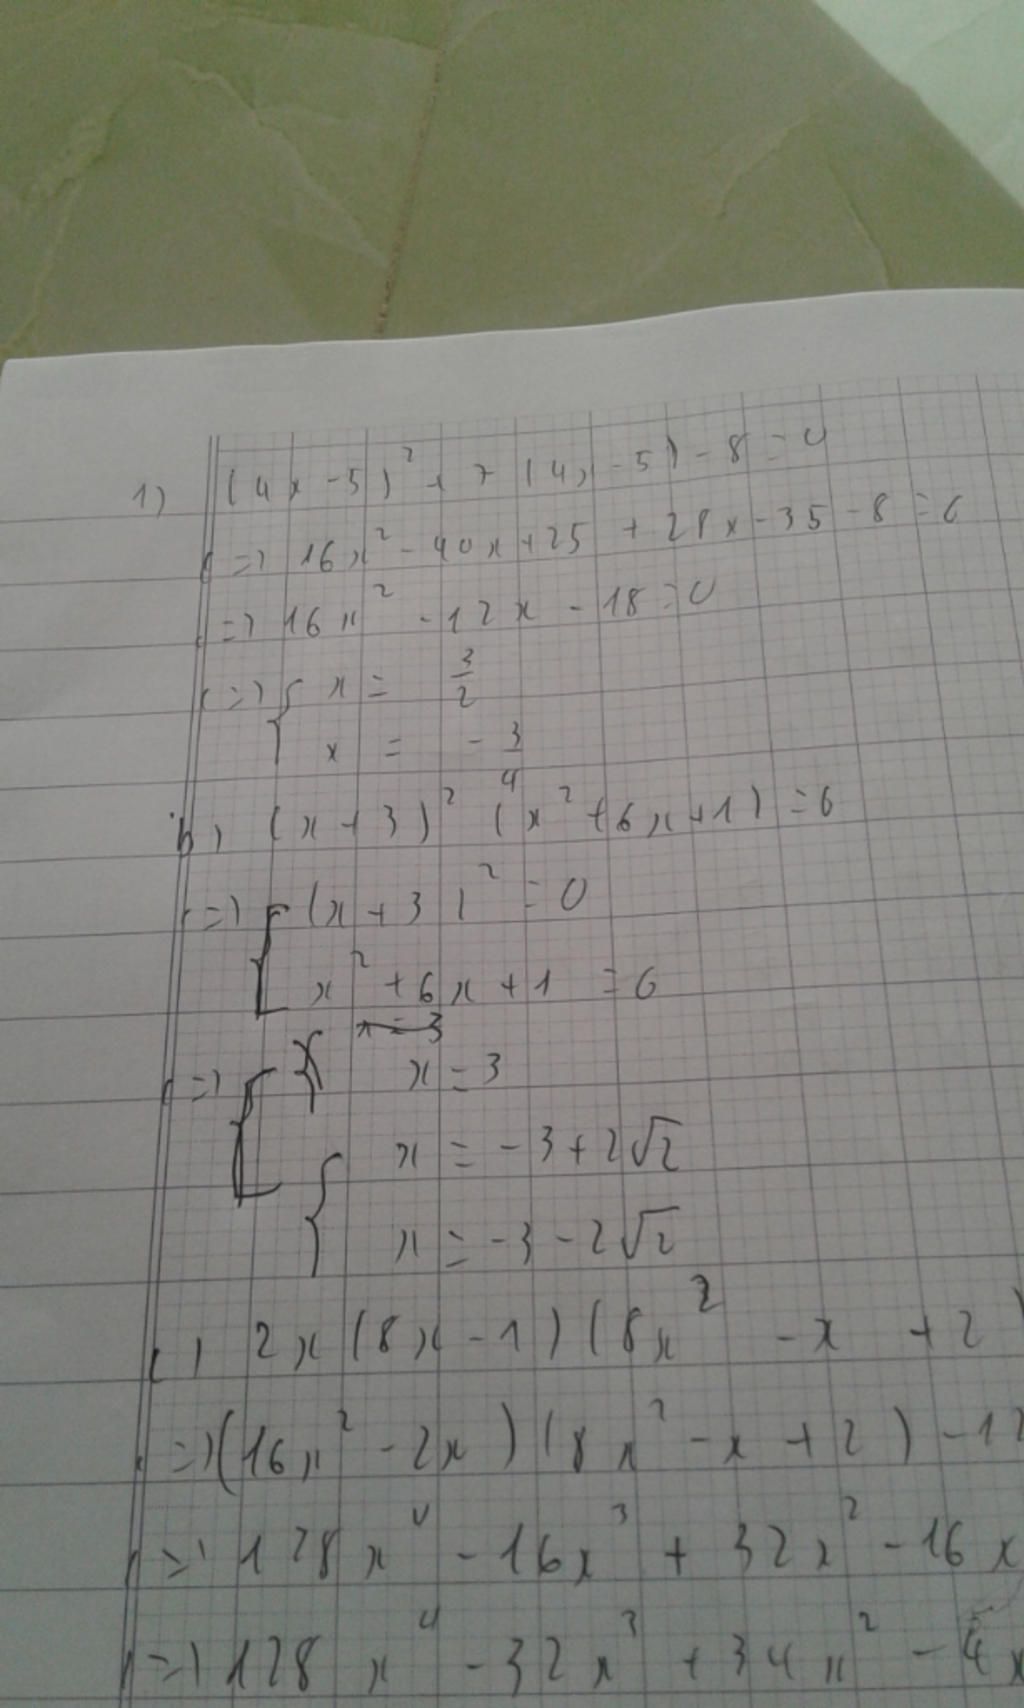 1) (4x - 5)² + 7 (4x - 5) - 8 = 0
<=> 16x² - 40x + 25 + 28x - 35 - 8 = 0
<=> 16x² - 12x - 18 = 0
<=> { x = 3/2
x = - 3/4
b) (x + 3)² (x² + 6x + 1) = 0
<=> [ (x + 3)² = 0
x² + 6x + 1 = 0
x = 3
<=> [ { x = 3
{ x = -3 + 2√2
x = -3 - 2√2
c) 2x (8x - 1) (8x² - x + 2)
<=> (16x² - 2x) (8x² - x + 2) - 12
<=> 128x⁴ - 16x³ + 32x² - 16x
<=> 128x⁴ - 32x³ + 34x² - 4x